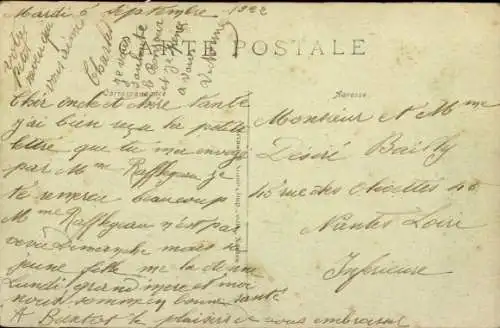 Mardi 5 Septembre 1922
CARTE POSTALE
votre
neveu qui
vous aime
Charles
je vous
souhaite
le Bonjour
et je pense
a vous
Correspondance
Adresse
Cher oncle et chère tante
j'ai bien reçu la petite
lettre que tu m'a envoyé
par Mme Raffegeau je
te remercie beaucoup
Mme Raffegeau n'est pas
venu Dimanche mais sa
jeune fille me la donne
Lundi grand mère et moi
nous sommes en bonne santé
A Bientot le plaisir de vous embrasser
Monsieur et Mme
Désiré Bailly
45 rue des Olivettes 45
Nantes Loire
Inferieure